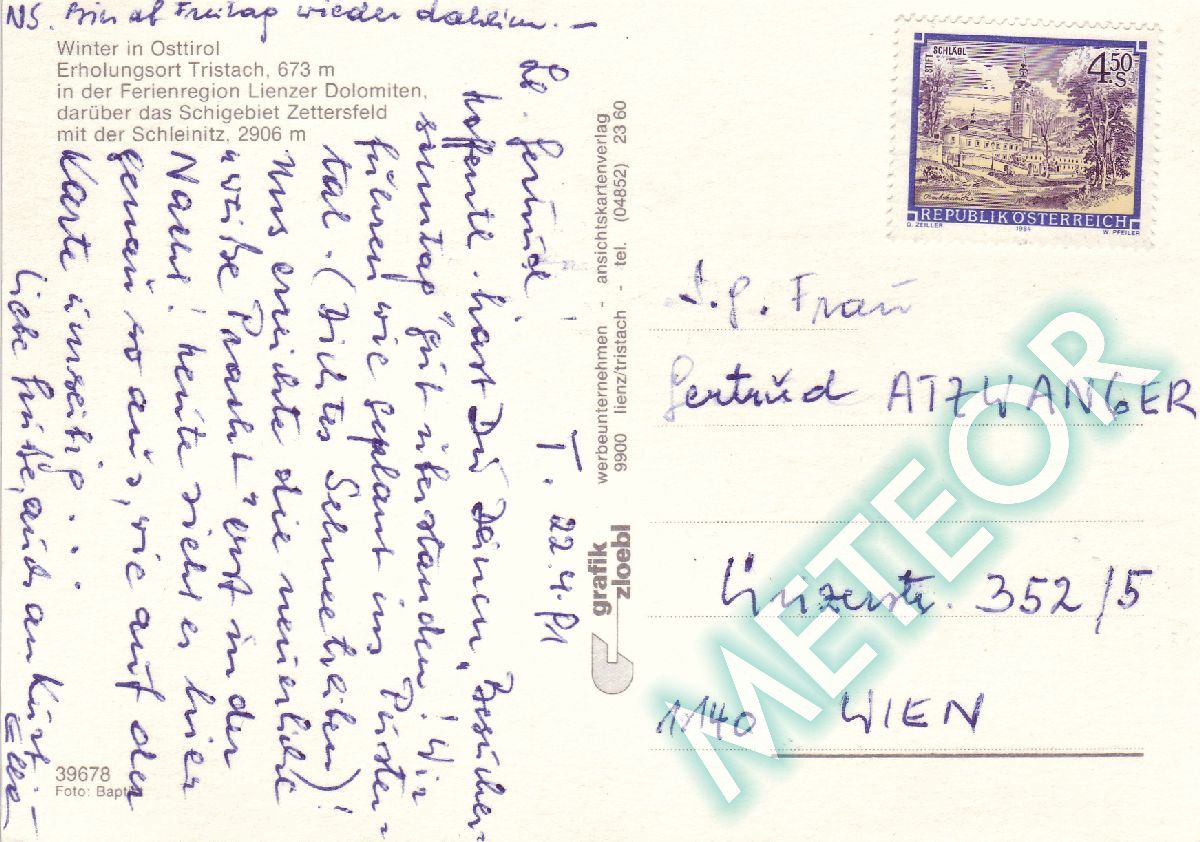 NS. Bin ab Freitag wieder daheim. –
Winter in Osttirol
Erholungsort Tristach, 673 m
in der Ferienregion Lienzer Dolomiten,
darüber das Schigebiet Zettersfeld
mit der Schleinitz, 2906 m
T. 22.4.91
Lb. Gertrud!
Hoffentl. hast Du Deinen „Besucher-
sonntag" gut überstanden! Wir
fuhren wie geplant ins Puster-
tal. (Dichtes Schneetreiben)!
Uns erreichte die neuerliche
"weiße Pracht" erst in der
Nacht! heute sieht es hier
genau so aus, wie auf der
Karte umseitig . . .
Liebe Grüße, auch an Kurt –
39678
Foto: Baptist
werbeunternehmen - ansichtskartenverlag
9900 lienz/tristach - tel. (04852) 23 60
grafik
zloebl
STIFT SCHLÄGL
4.50 S
REPUBLIK ÖSTERREICH
O. ZEILLER 1984 W. PFEILER
Frau
Gertrud ATZWANGER
Linzerstr. 352/5
1140 WIEN
METEOR